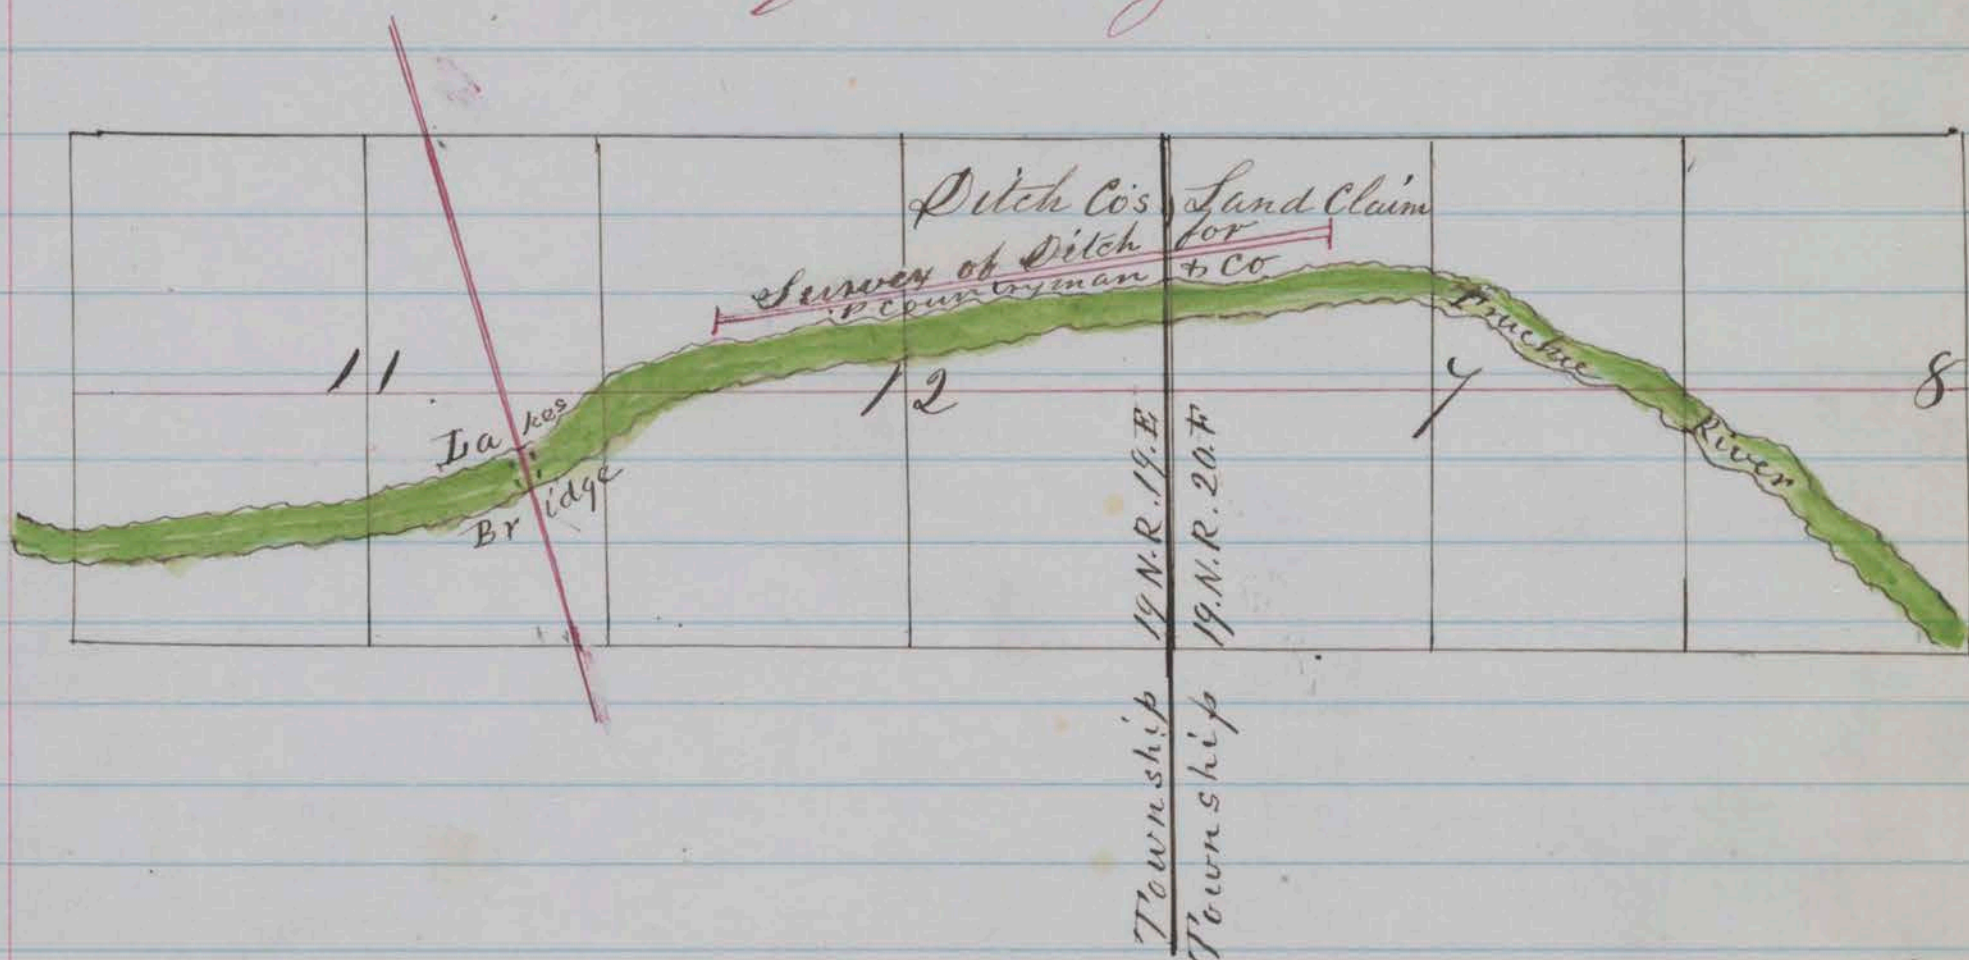 Ditch Co's Land Claim
Survey of Ditch for
P Countryman & Co
11
12
7
8
Lakes
Bridge
Truckee River
Township 19 N.R. 19. E
Township 19. N. R. 20. E